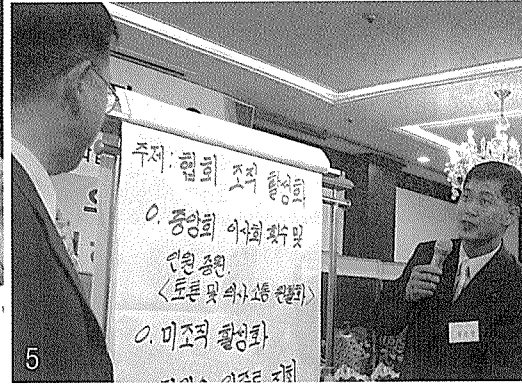 주제: 협회 조직 활성화
O. 중앙회 이사회 횟수 및
인원 증원.
<토론 및 의사소통 원활화>
O. 미조직 활성화
5